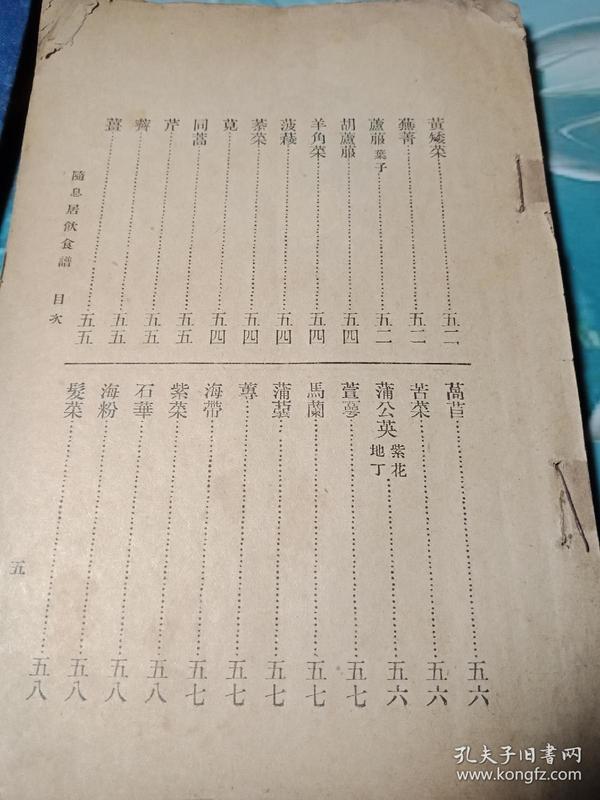 黃矮菜……五二
蕪菁……五二
蘆菔 葉子……五二
胡蘆菔……五四
羊角菜……五四
菠薐……五四
菾菜……五四
莧……五四
同蒿……五五
芹……五五
薺……五五
薑……五五
萵苣……五六
苦菜……五六
蒲公英 紫花地丁……五六
萱萼……五七
馬蘭……五七
蒲蒻……五七
蓴……五七
海帶……五七
紫菜……五八
石華……五八
海粉……五八
髮菜……五八
隨息居飲食譜 目次
五
孔夫子旧书网
www.kongfz.com